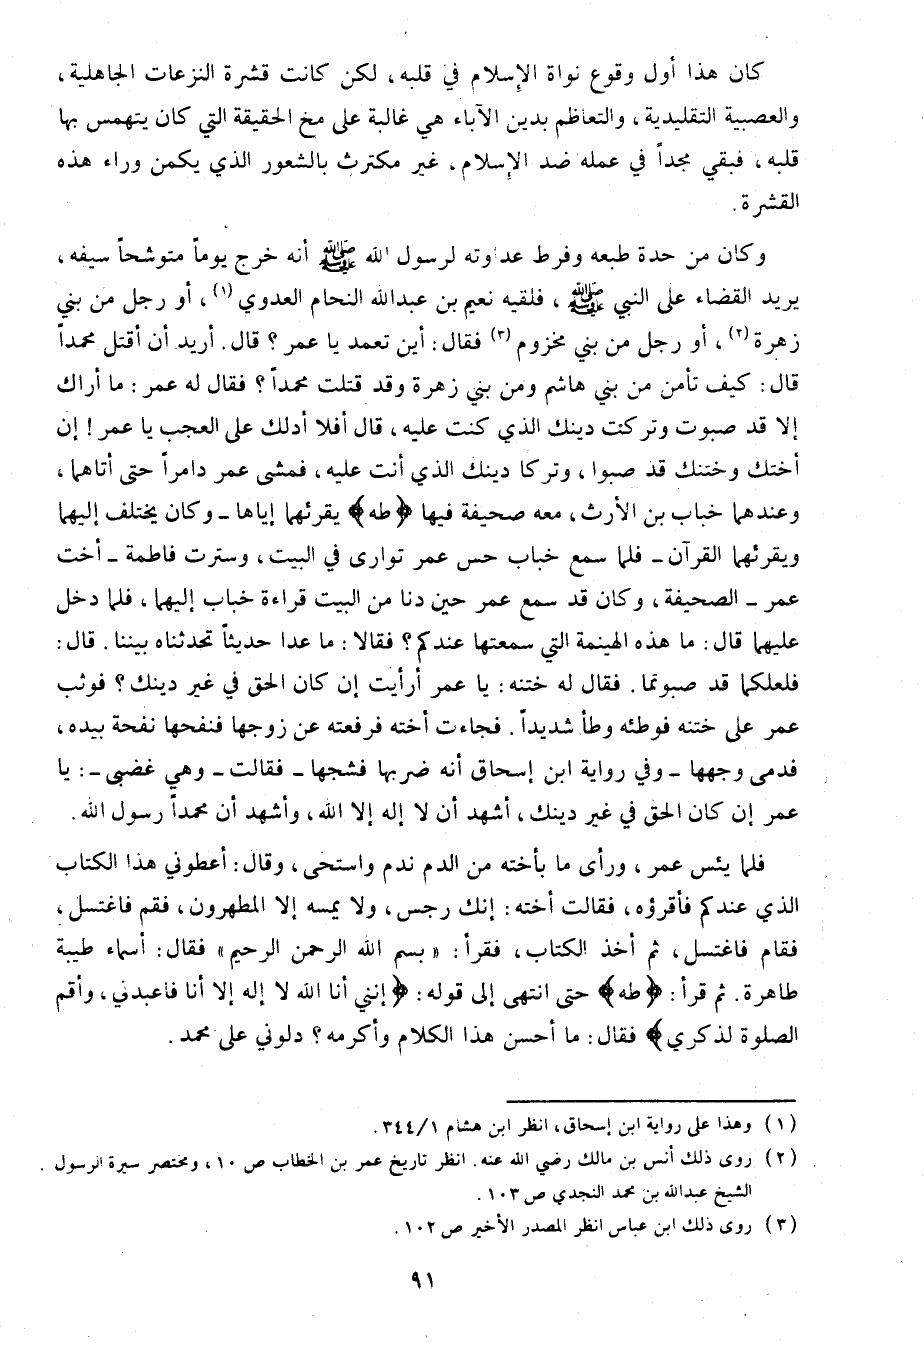 كان هذا أول وقوع نواة الإسلام في قلبه، لكن كانت قشرة النزعات الجاهلية،
والعصبية التقليدية، والتعاظم بدين الآباء هي غالبة على مخ الحقيقة التي كان يتهمس بها
قلبه، فبقي مجداً في عمله ضد الإسلام، غير مكترث بالشعور الذي يكمن وراء هذه
القشرة.
وكان من حدة طبعه وفرط عداوته لرسول الله ﷺ أنه خرج يوماً متوشحاً سيفه،
يريد القضاء على النبي ﷺ، فلقيه نعيم بن عبدالله النحام العدوي (١)، أو رجل من بني
زهرة (٢)، أو رجل من بني مخزوم (٣) فقال: أين تعمد يا عمر؟ قال. أريد أن أقتل محمداً
قال: كيف تأمن من بني هاشم ومن بني زهرة وقد قتلت محمداً؟ فقال له عمر: ما أراك
إلا قد صبوت وتركت دينك الذي كنت عليه، قال أفلا أدلك على العجب يا عمر! إن
أختك وختنك قد صبوا، وتركا دينك الذي أنت عليه، فمشى عمر دامراً حتى أتاهما،
وعندهما خباب بن الأرث، معه صحيفة فيها ﴿طه﴾ يقرئهما إياها - وكان يختلف إليهما
ويقرئهما القرآن - فلما سمع خباب حس عمر توارى في البيت، وسترت فاطمة - أخت
عمر - الصحيفة، وكان قد سمع عمر حين دنا من البيت قراءة خباب إليهما، فلما دخل
عليهما قال: ما هذه الهينمة التي سمعتها عندكم؟ فقالا: ما عدا حديثاً تحدثناه بيننا. قال:
فلعلكما قد صبوتما. فقال له ختنه: يا عمر أرأيت إن كان الحق في غير دينك؟ فوثب
عمر على ختنه فوطئه وطأ شديداً. فجاءت أخته فرفعته عن زوجها فنفحها نفحة بيده،
فدمى وجهها - وفي رواية ابن إسحاق أنه ضربها فشجها - فقالت - وهي غضبى -: يا
عمر إن كان الحق في غير دينك، أشهد أن لا إله إلا الله، وأشهد أن محمداً رسول الله.
فلما يئس عمر، ورأى ما بأخته من الدم ندم واستحى، وقال: أعطوني هذا الكتاب
الذي عندكم فأقرؤه، فقالت أخته: إنك رجس، ولا يمسه إلا المطهرون، فقم فاغتسل،
فقام فاغتسل، ثم أخذ الكتاب، فقرأ: «بسم الله الرحمن الرحيم» فقال: أسماء طيبة
طاهرة. ثم قرأ: ﴿طه﴾ حتى انتهى إلى قوله: ﴿إنني أنا الله لا إله إلا أنا فاعبدني، وأقم
الصلوة لذكري﴾ فقال: ما أحسن هذا الكلام وأكرمه؟ دلوني على محمد.
(١) وهذا على رواية ابن إسحاق، انظر ابن هشام ٣٤٤/١.
(٢) روى ذلك أنس بن مالك رضي الله عنه. انظر تاريخ عمر بن الخطاب ص ١٠، ومختصر سيرة الرسول
الشيخ عبدالله بن محمد النجدي ص ١٠٣.
(٣) روى ذلك ابن عباس انظر المصدر الأخير ص ١٠٢.
٩١